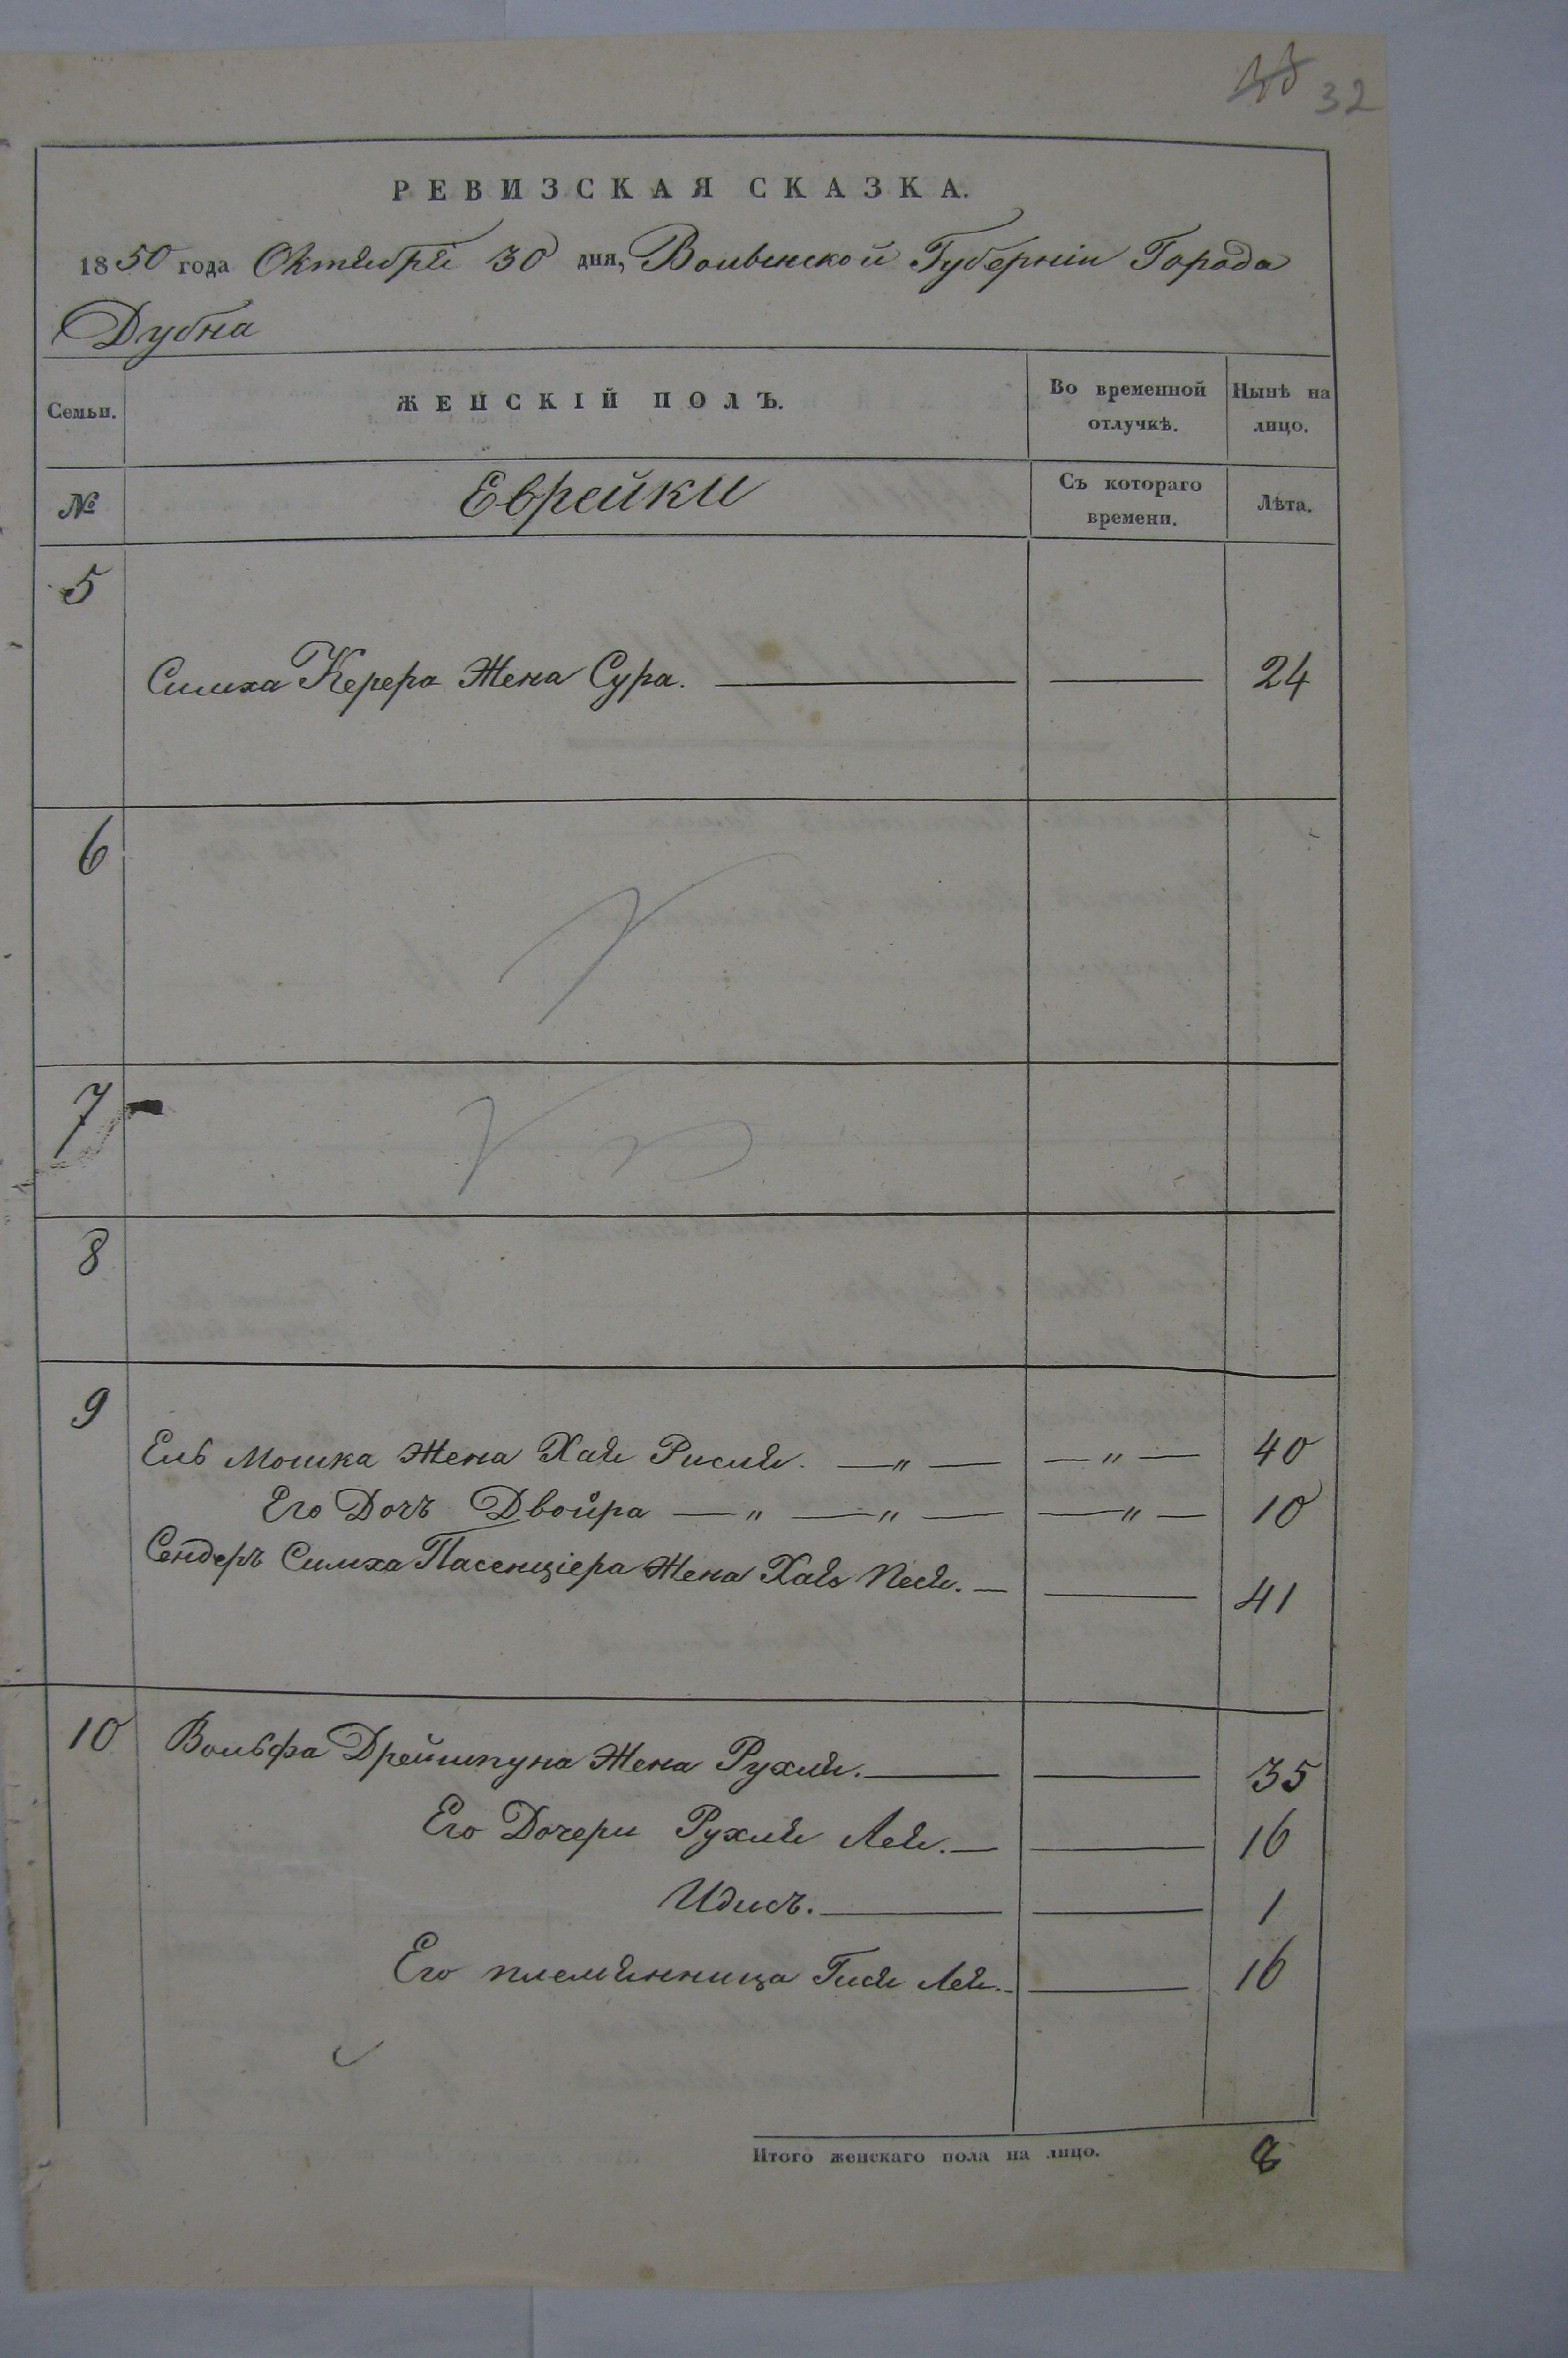 32
РЕВИЗСКАЯ СКАЗКА.
1850 года Октября 30 дня, Волынской Губерніи Города
Дубна
Семьи. ЖЕНСКІЙ ПОЛЪ. Во временной отлучкѣ. Нынѣ на лицо.
№ Еврейки Съ котораго времени. Лѣта.
5
Симха Керера Жена Сура. 24
6
7
8
9
Ель Мошка Жена Хая Рися. — " — — " — 40
Его Дочь Двойра — " — " — — " — 10
Сендеръ Симха Пасенціера Жена Хая Песя. 41
10 Вольфа Дрейшпуна Жена Рухля. 35
Его Дочери Рухля Лея. 16
Идись. 1
Его племянница Гися Лея. 16
Итого женскаго пола на лицо. 8